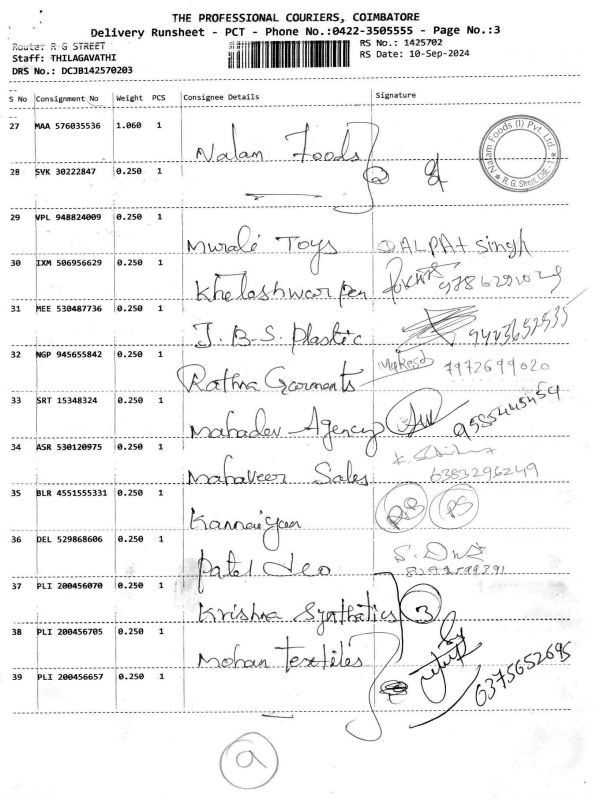 THE PROFESSIONAL COURIERS, COIMBATORE
Delivery Runsheet - PCT - Phone No.:0422-3505555 - Page No.:3
Route: R G STREET
RS No.: 1425702
Staff: THILAGAVATHI
RS Date: 10-Sep-2024
DRS No.: DCJB142570203
S No Consignment No Weight PCS Consignee Details Signature
27 MAA 576035536 1.060 1 Nalam Foods
Nalam Foods (I) Pvt. Ltd. * R. G. Street CBE - 1 *
28 SVK 30222847 0.250 1
2
29 VPL 948824009 0.250 1 Murali Toys DALPAt Singh
30 IXM 506956629 0.250 1 Kheleshwar Pen
31 MEE 530487736 0.250 1 J.B.S. Plastic 9443652535
32 NGP 945655842 0.250 1 Rathna Garments Mukesh 7972699020
33 SRT 15348324 0.250 1 Mahadev Agency 9585445454
34 ASR 530120975 0.250 1 Mahaveer Sales 6383296249
35 BLR 4551555331 0.250 1 Kannaiyan
36 DEL 529868606 0.250 1 Patel Leo
37 PLI 200456070 0.250 1 Krishna Synthatics 3
38 PLI 200456705 0.250 1 Mohan textiles
39 PLI 200456657 0.250 1 6375652695
a